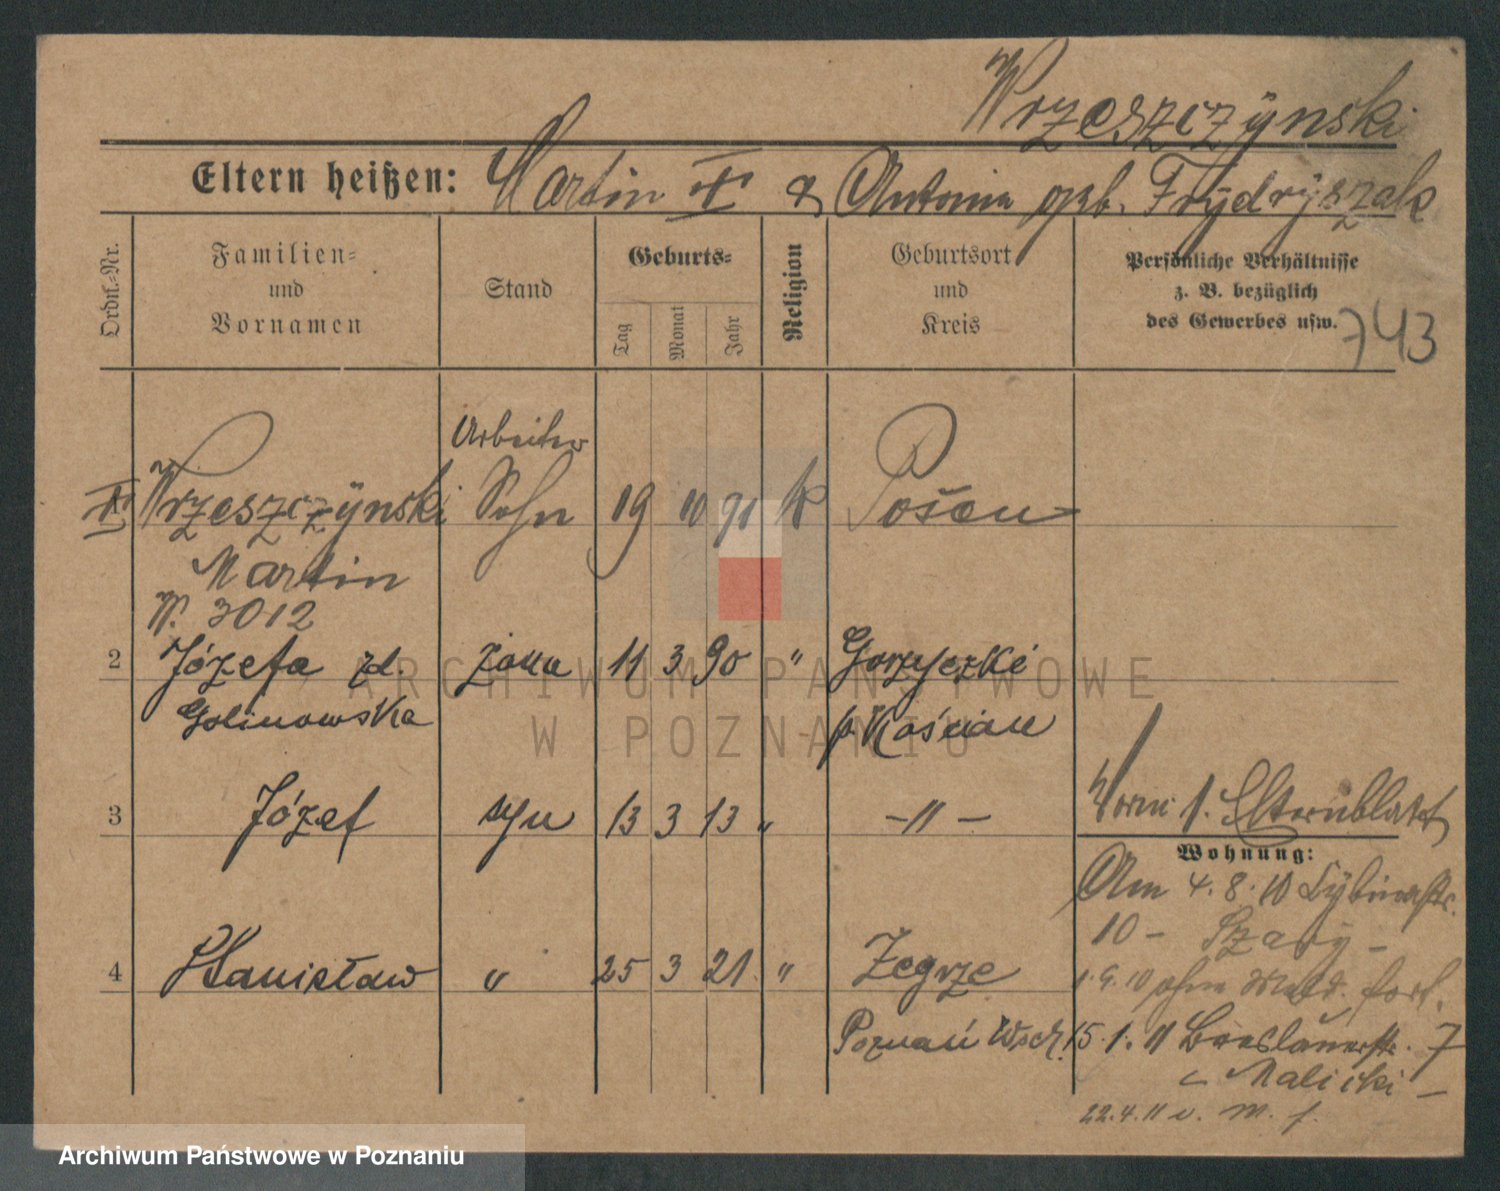 Wrzeszczÿnski
Eltern heißen: Martin X & Antonia geb. Frÿdrÿszak
Ordn.-Nr.
Familien-
und
Vornamen
Stand
Geburts-
Tag
Monat
Jahr
Religion
Geburtsort
und
Kreis
Persönliche Verhältnisse
z. B. bezüglich
des Gewerbes usw.
743
Arbeiter
Wrzeszczÿnski Sohn 19 10 91 k Posen
Martin
W. 3012
2 Józefa zd. żona 11 3 90 " Gorzyczki
Golinowska p. Kościan
3 Józef syn 13 3 13 " -"-
Vorm. 1. Elternblatt
Wohnung:
Am 4.8.10
4 Stanisław " 25 3 21. " Zegrze
10 - Szary -
1.9.10 ohne Meld. fort.
Poznań Wsch. 15.1.11 Breslauerstr. 7
Malicki -
22.4.11 o. M. f.
ARCHIWUM PAŃSTWOWE
W POZNANIU
Archiwum Państwowe w Poznaniu